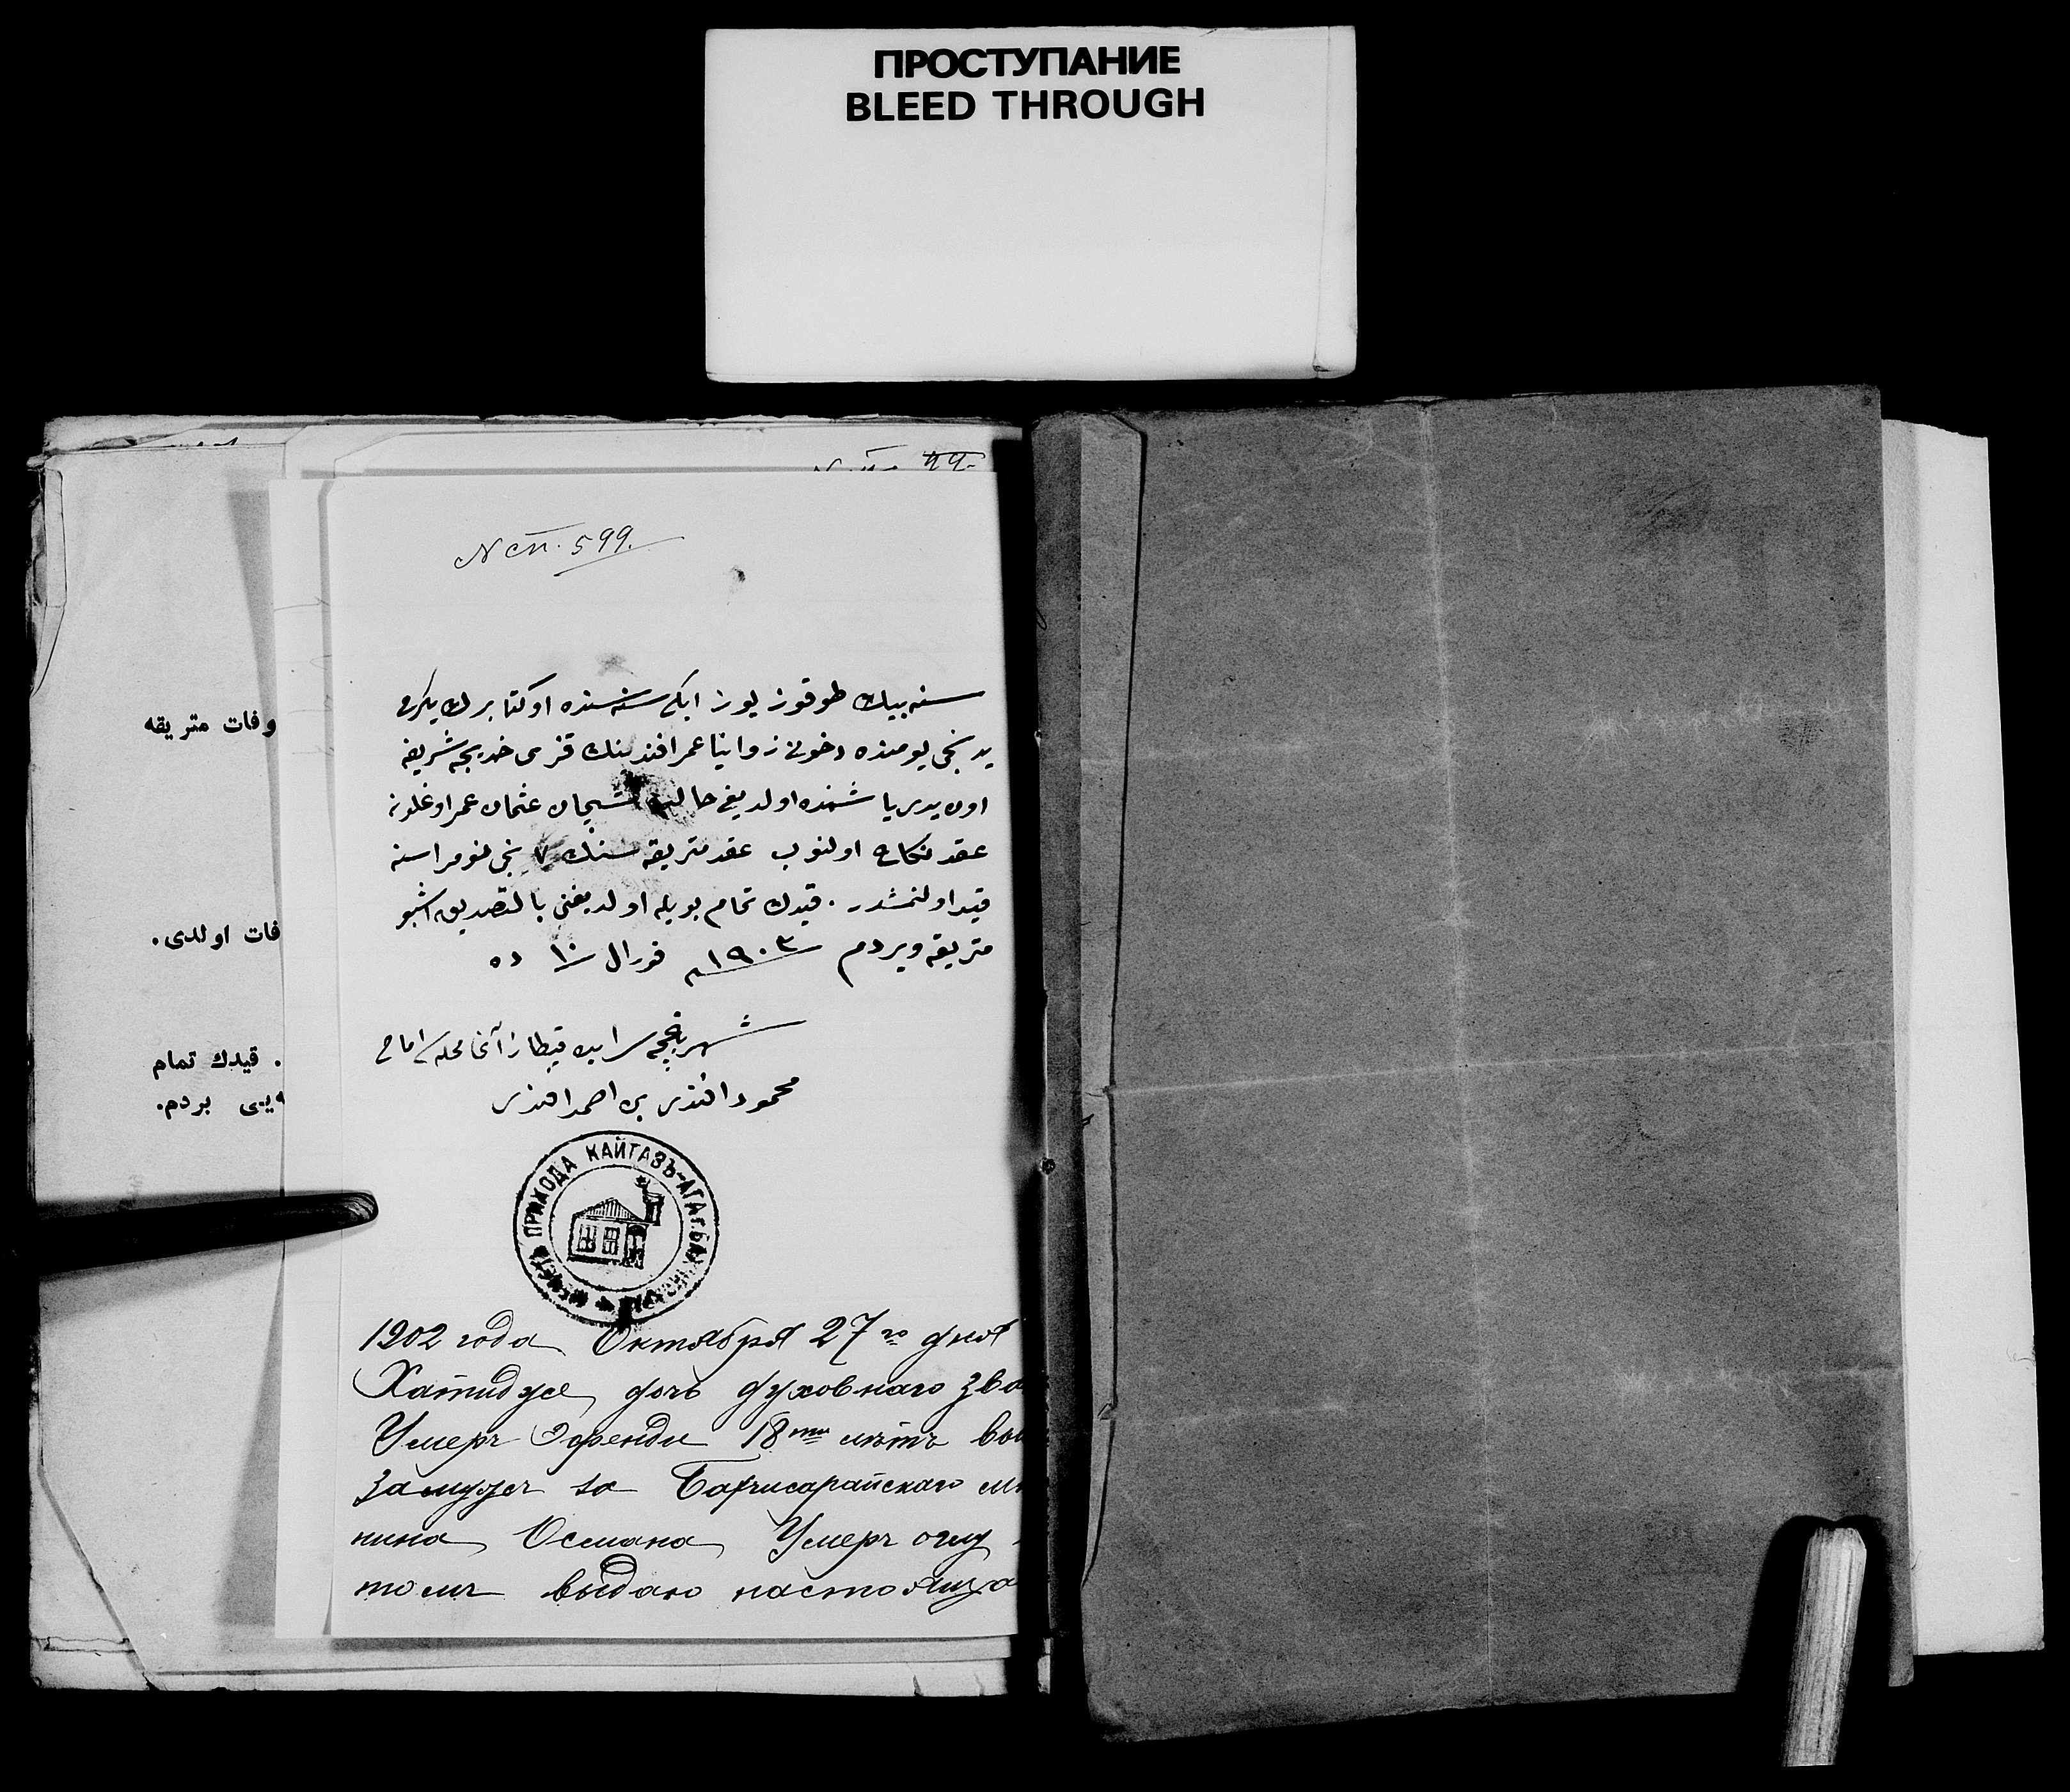 ПРОСТУПАНИЕ
BLEED THROUGH
وفات متریقه
فات اولدی.
. قیدك تمام
یی بردم.
99.
N сп. 599.
سنه بیك طوقوز یوز ایکی سنه سنده اوکتابرك یکرمی
یدنجی یومنده دخوونی زوانیا عمر افندینك قزی خدیجه شریفه
اون یدی یاشنده اولدیغی حالده عثمان عمر اوغلونه
عقد نکاح اولنوب عقد متریقه سنك ٧ نجی نومراسنه
قید اولنمشدر. قیدك تمام بویله اولدیغنی بالتصدیق اشبو
متریقه ویردم ١٩٠٣ فورال ١٠ ده
شهر باغچه سرایده قیطاز آغا محله سی امامی
محمود افندی بن احمد افندی
ПРИХОДА КАЙТАЗЪ-АГА Г.
1902 года Октября 27го дня
Хатидже, дочь духовнаго зва
Умеръ Эфенди 18ти летъ вы
замужъ за Бахчисарайскаго м
нина Османа Умеръ оглу
томъ выдаю настояща